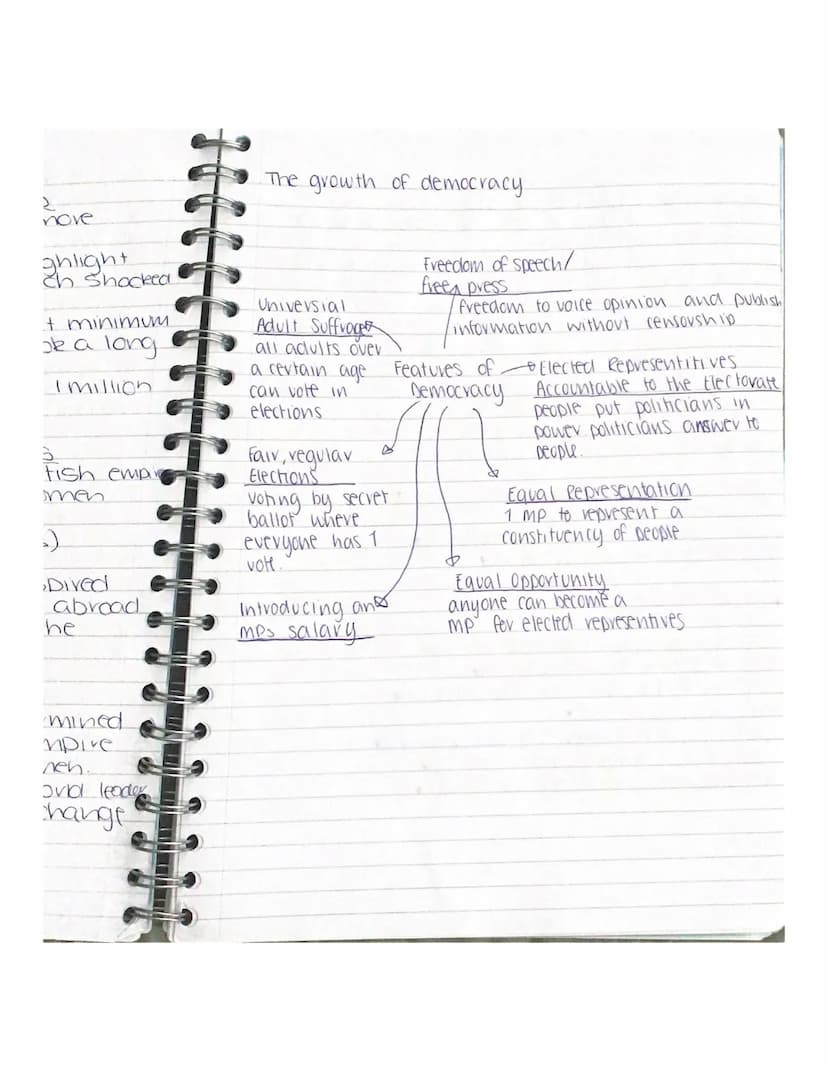 The growth of democracy
Freedom of speech/
free press
freedom to voice opinion and publish
information without censorship
Universial
Adult Suffrage
all adults over
a certain age
can vote in
elections
Features of
Democracy
Elected Representitives
Accountable to the Electorate
people put politicians in
power politicians answer to
people.
fair, regular
Elections
voting by secret
ballot where
everyone has 1
vote.
Equal Representation
1 MP to represent a
constituency of people
Introducing an
MPs salary
Equal Opportunity
anyone can become a
MP for elected representives
more
ghlight
ch shocked
t minimum
a long
1 million
tish empire
omen
abroad
he
mined
mpire
men.
orld leader
change